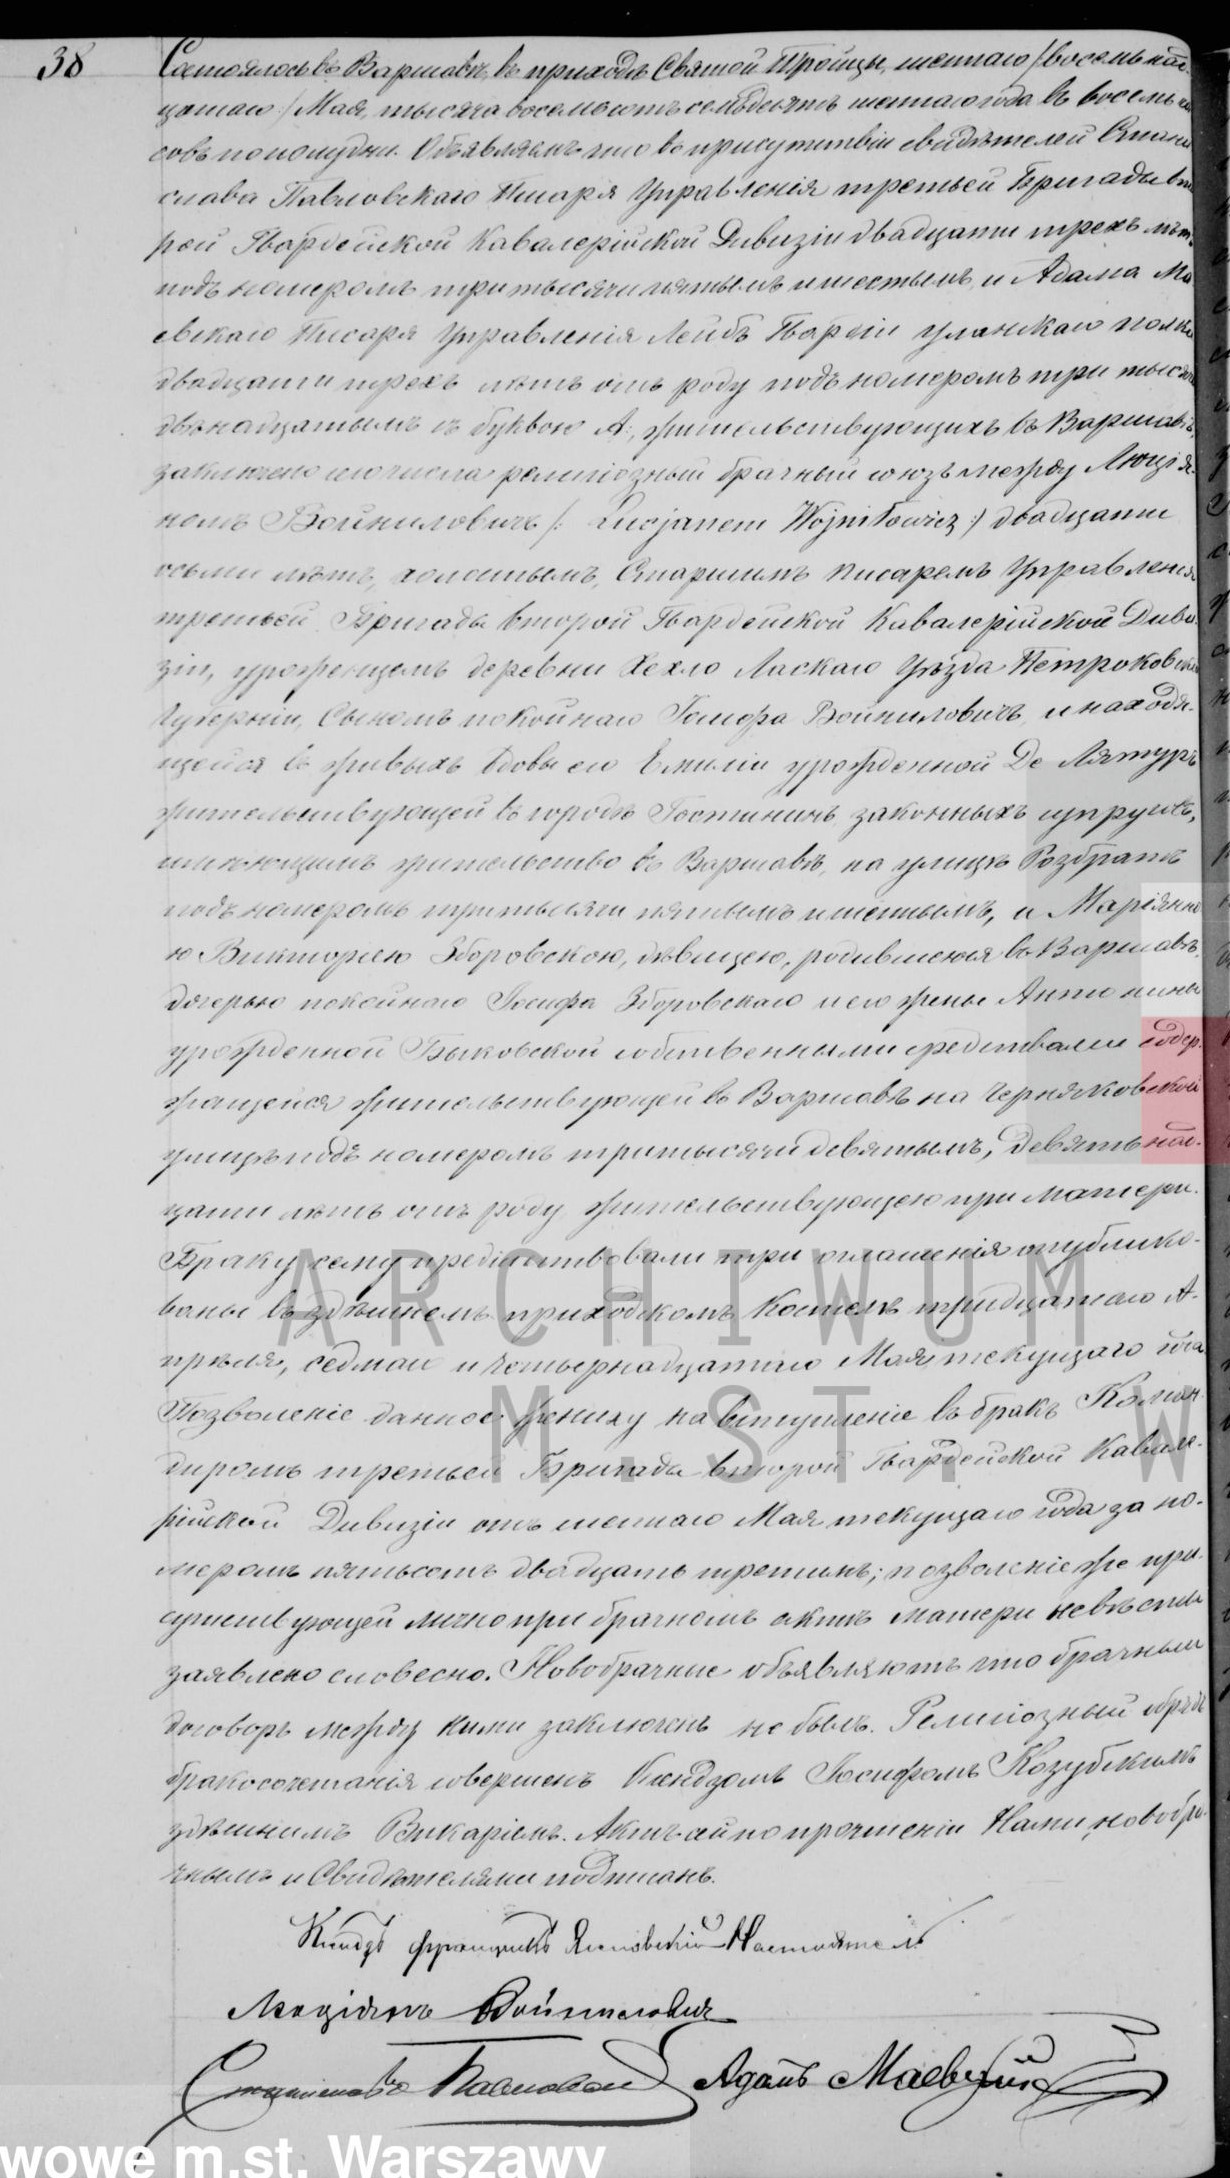 38
Состоялось въ Варшавѣ, въ приходѣ Святой Троицы, шестаго /восемнад-
цатаго:/ Мая, тысяча восемьсотъ семьдесятъ шестаго года въ восемь ча
совъ пополудни. Объявляемъ что въ присутствіи свидѣтелей Стани
слава Павловскаго Писаря Управленія третьей Бригады вто
рой Гвардейской Кавалерійской Дивизіи двадцати трехъ лѣтъ
подъ номеромъ три тысячи пятымъ и шестымъ, и Адама Ма
евскаго Писаря Управленія Лейбъ Гвардіи Уланскаго полка
двадцати трехъ лѣтъ отъ роду подъ номеромъ три тысячи
двѣнадцатымъ съ буквою А:, жительствующихъ въ Варшавѣ,
заключено сего числа религіозный брачный союзъ между Люціа-
номъ Войниловичъ /: Lucjanem Wojniłowicz :/ двадцати
осьми лѣтъ, холостымъ, Старшимъ писаремъ Управленія
третьей Бригады второй Гвардейской Кавалерійской Диви-
зіи, уроженцемъ деревни Хехло Ласкаго Уѣзда Петроковской
Губерніи, Сыномъ покойнаго Іосифа Войниловичъ, и находя-
щейся въ живыхъ вдовы его Емиліи урожденной Де Лятуръ
жительствующей въ городѣ Гостынинъ, законныхъ супруговъ,
имѣющимъ жительство въ Варшавѣ, на улицѣ Розбратъ
подъ номеромъ три тысячи пятымъ и шестымъ, и Маріянно
ю Викторіею Зборовскою, дѣвицею, родившеюся въ Варшавѣ,
дочерью покойнаго Іосифа Зборовскаго и его жены Антонины
урожденной Быковской собственными средствами содер-
жащейся жительствующей въ Варшавѣ на Черняковской
улицѣ подъ номеромъ три тысячи девятымъ, девятнад-
цати лѣтъ отъ роду жительствующею при матери.
Браку сему предшествовали три оглашенія опублико-
ваны въ здѣшнемъ приходскомъ Костелѣ тридцатаго А-
прѣля, седмаго и четырнадцатаго Мая текущаго года
Позволеніе данное жениху на вступленіе въ бракъ Коман-
диромъ третьей Бригады второй Гвардейской Кавале-
рійской Дивизіи отъ шестаго Мая текущаго года за но-
меромъ пятьсотъ двадцать третимъ; позволеніе же при-
сутствующей лично при брачномъ актѣ матери невѣсты
заявлено словесно. Новобрачные объявляютъ что брачный
договоръ между ними заключенъ не былъ. Религіозный обрядъ
бракосочетанія совершенъ Ксендзомъ Іосифомъ Козубскимъ
здѣшнимъ Викаріемъ. Актъ сей по прочтеніи Нами, новобра-
чнымъ и Свидѣтелями подписанъ.
Ксендзъ Францишекъ Настоятель
Люціянъ Войниловичъ
Станиславъ Павловскій Адамъ Маевскій
ARCHIWUM
M. ST. W
wowe m.st. Warszawy